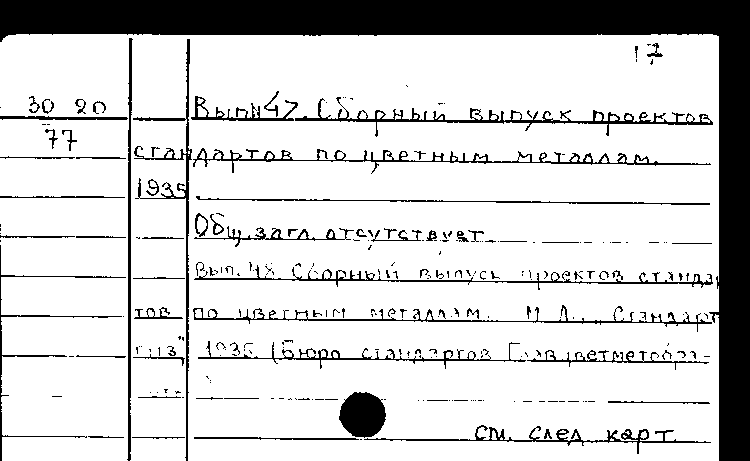 17
30 20 Вып. 47. Сборный выпуск проектов
77
стандартов по цветным металлам.
1935.
Общ. загл. отсутствует.
Вып. 48. Сборный выпуск проектов стандар
тов по цветным металлам. М. Л., "Стандарт
гиз", 1935. (Бюро стандартов Главцветметобра-
см. след. карт.